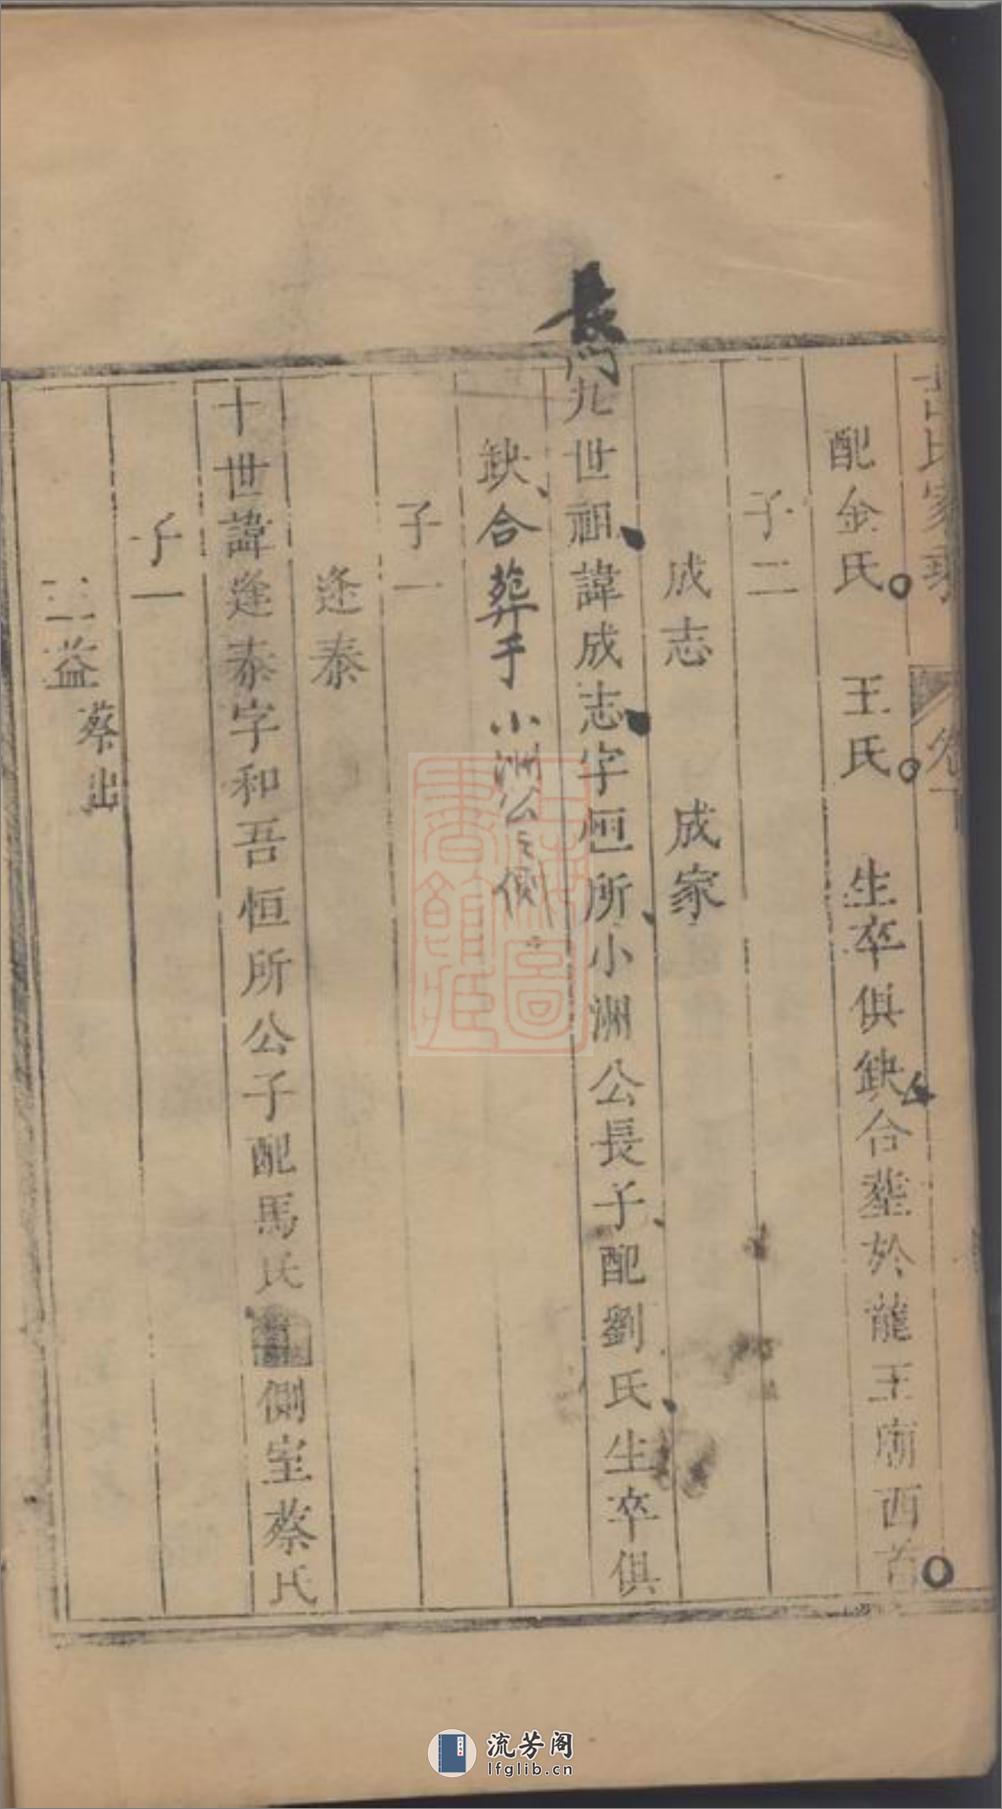 氏家乘
卷
配金氏 王氏 生卒俱缺合塟於龍王廟西首
子二
成志 成家
長門
九世祖諱成志字恒所小洲公長子配劉氏生卒俱
缺合葬于小洲公之側
子一
逢泰
十世諱逢泰字和吾恒所公子配馬氏 側室蔡氏
子一
三益 蔡出
流芳阁
lfglib.cn